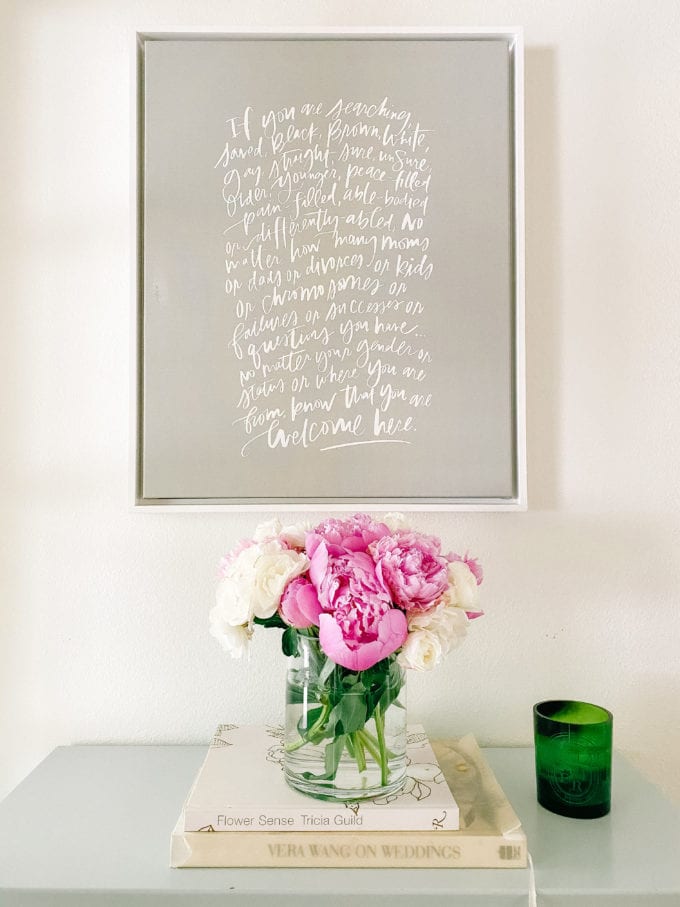 If you are searching,
saved, Black, Brown, White,
gay, straight, sure, unsure,
older, younger, peace-filled
pain-filled, able-bodied
or differently-abled, No
matter how many moms
or dads or divorces or kids
or chromosomes or
failures or successes or
questions you have...
no matter your gender or
status or where you are
from, know that you are
welcome here.
Flower Sense Tricia Guild
VERA WANG ON WEDDINGS